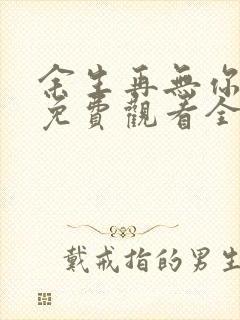 余生再無你
免費觀看全
戴戒指的男生